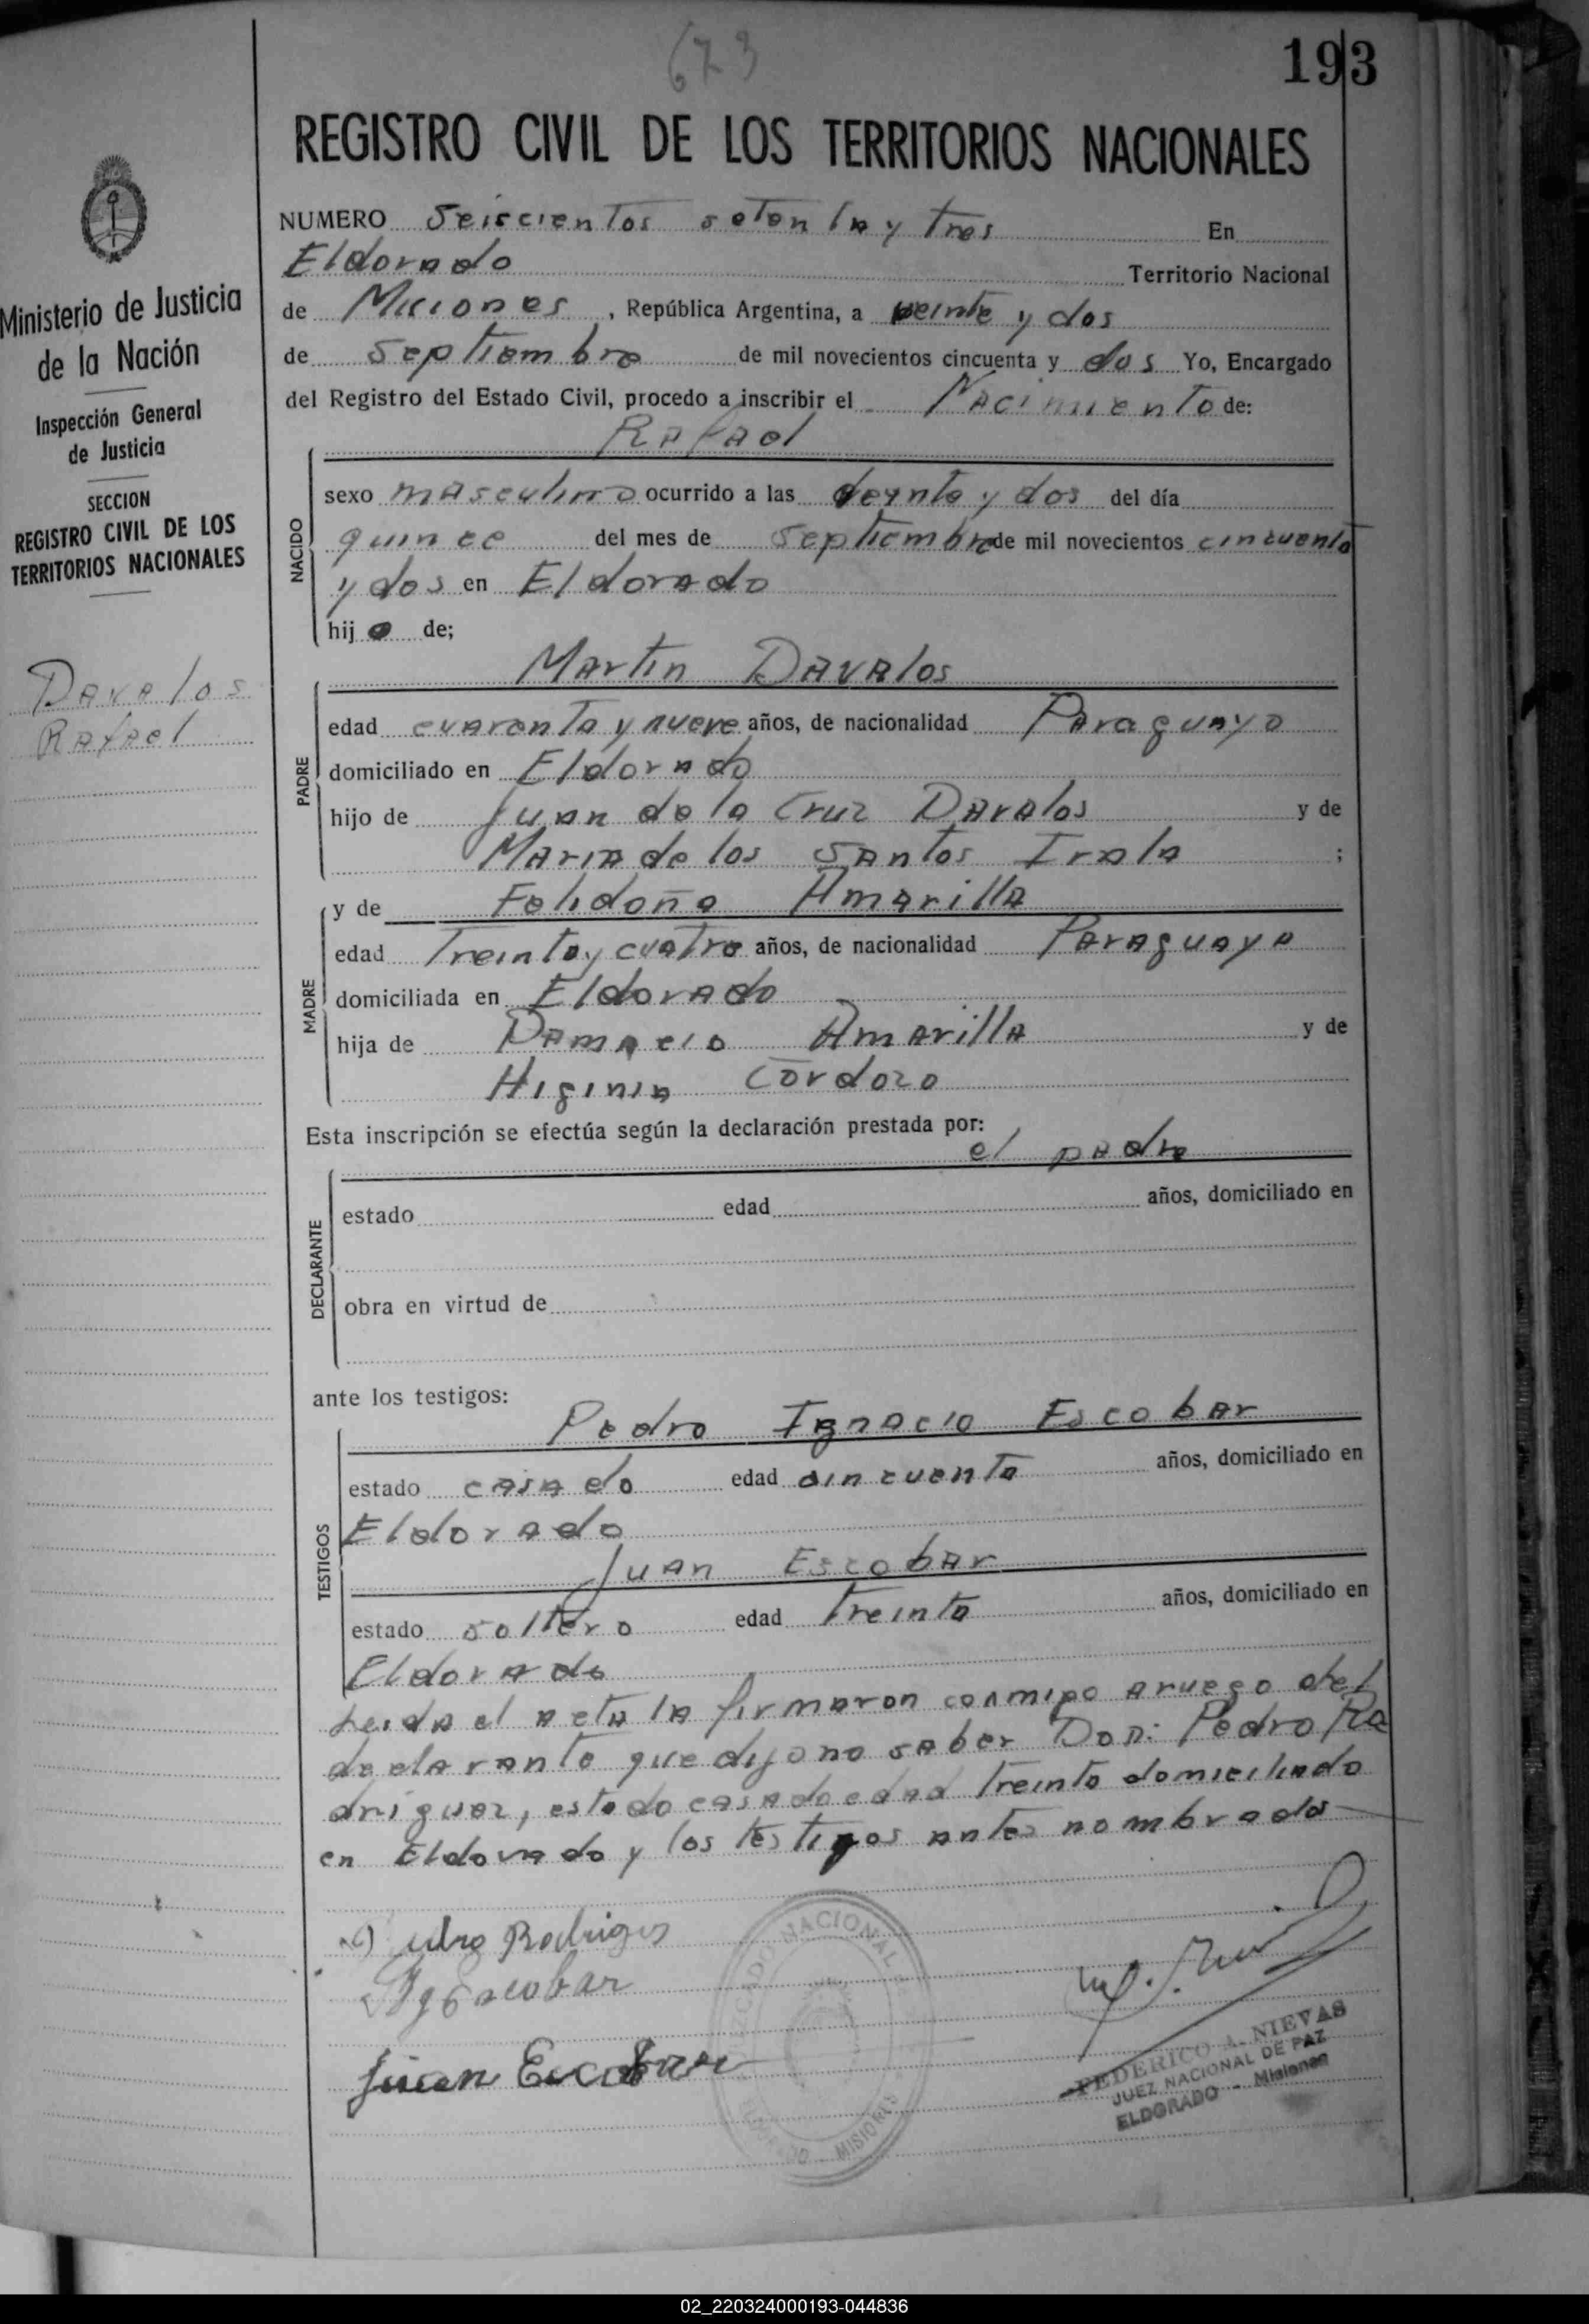 673
193
REGISTRO CIVIL DE LOS TERRITORIOS NACIONALES
Ministerio de Justicia
de la Nación
Inspección General
de Justicia
SECCION
REGISTRO CIVIL DE LOS
TERRITORIOS NACIONALES
Davalos
Rafael
NUMERO Seiscientos setenta y tres En
Eldorado Territorio Nacional
de Miciones, República Argentina, a veinte y dos
de Septiembre de mil novecientos cincuenta y dos Yo, Encargado
del Registro del Estado Civil, procedo a inscribir el Nacimiento de:
Rafael
NACIDO
sexo masculino ocurrido a las veynte y dos del día
quince del mes de Septiembre de mil novecientos cincuenta
y dos en Eldorado
hijo de;
Martin Davalos
PADRE
edad cuarenta y nueve años, de nacionalidad Paraguayo
domiciliado en Eldorado
hijo de Juan de la Cruz Davalos y de
Maria de los Santos Irala ;
y de Amarilla
MADRE
edad Treinta y cuatro años, de nacionalidad Paraguaya
domiciliada en Eldorado
hija de Damacio Amarilla y de
Higinia Cordozo
Esta inscripción se efectúa según la declaración prestada por:
el padre
DECLARANTE
estado edad años, domiciliado en
obra en virtud de
ante los testigos:
Pedro Ignacio Escobar
TESTIGOS
estado casado edad cincuenta años, domiciliado en
Eldorado
Juan Escobar
estado soltero edad treinta años, domiciliado en
Eldorado
Leida el acta la firmaron conmigo aruego del
declarante que dijo no saber Don: Pedro Ro
driguez, estado casado edad treinta domiciliado
en Eldorado y los testigos antes nombrados
Pedro Rodrigues
Escobar
Juan Escobar
JUZGADO NACIONAL DE
ELDORADO - MISIONES
FEDERICO A. NIEVAS
JUEZ NACIONAL DE PAZ
ELDORADO - Misiones
02_220324000193-044836